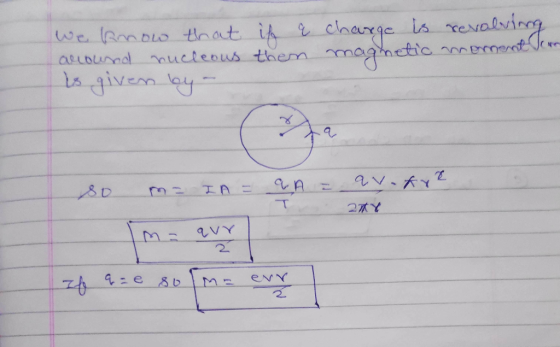 we know that if q charge is revolving
around nucleous then magnetic moment
is given by -
r
q
so m = IA = qA/T = qv · πr²/2πr
m = qvr/2
If q = e so m = evr/2